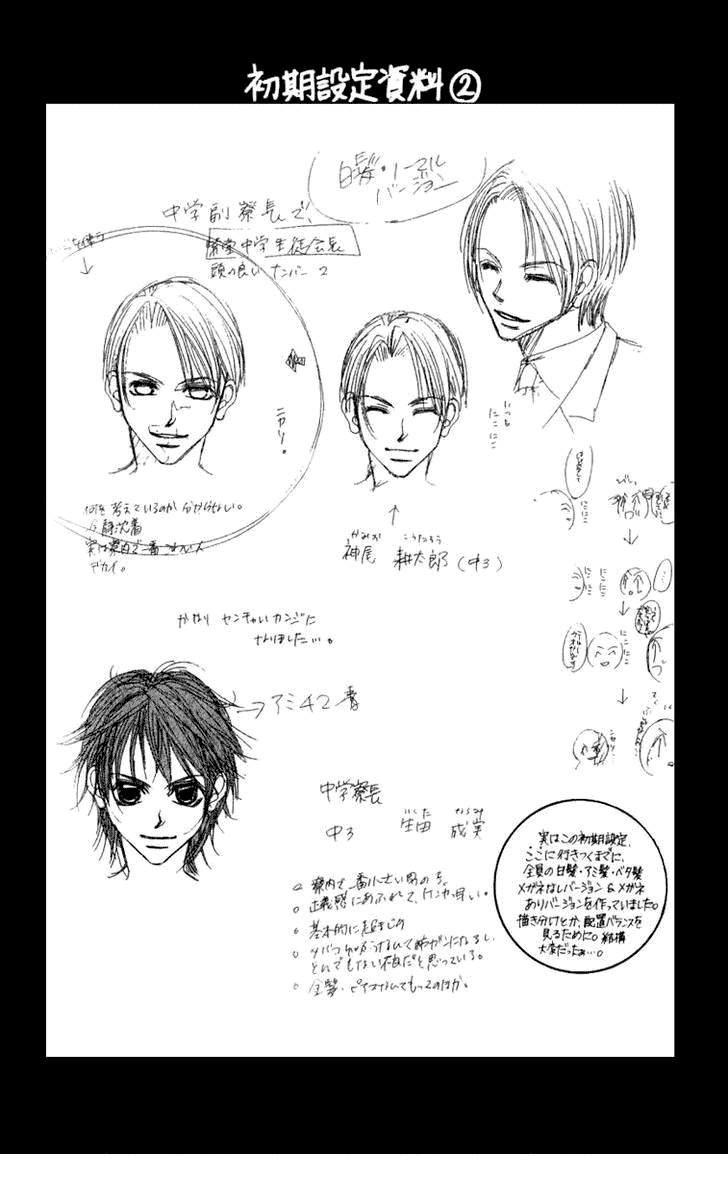 初期設定資料②
白髪・ノーマル
バージョン
中学副寮長で、
寮家中学生徒会長
頭の良いナンバー2
↓
ニカリ。
いつも
にこにこ
何を考えているのか分からない。
冷静沈着
実は寮内で一番こわい人
デカイ。
↑
かみお こうたろう
神尾 耕太郎(中3)
にこにこ
↓
にこにこ
にこにこ
↓
にこにこ
↓
かなりヤンチャいカンジに
なりました…。
→アミ42番
中学寮長
いくた なるみ
中3 生田 成実
○寮内で一番小さい男の子。
○正義感にあふれて、ケンカっ早い。
○基本的に超まじめ
○タバコなんて肺ガンになるし、
とんでもない不良だと思っている。
○金髪・ピアスなんてもってのほか。
実はこの初期設定、
ここに行きつくまでに、
全員の白髪・アミ髪・ベタ髪
メガネなしバージョン&メガネ
ありバージョンを作っていました。
描き分けとか、配置バランスを
見るために。結構
大変だったぁ…。